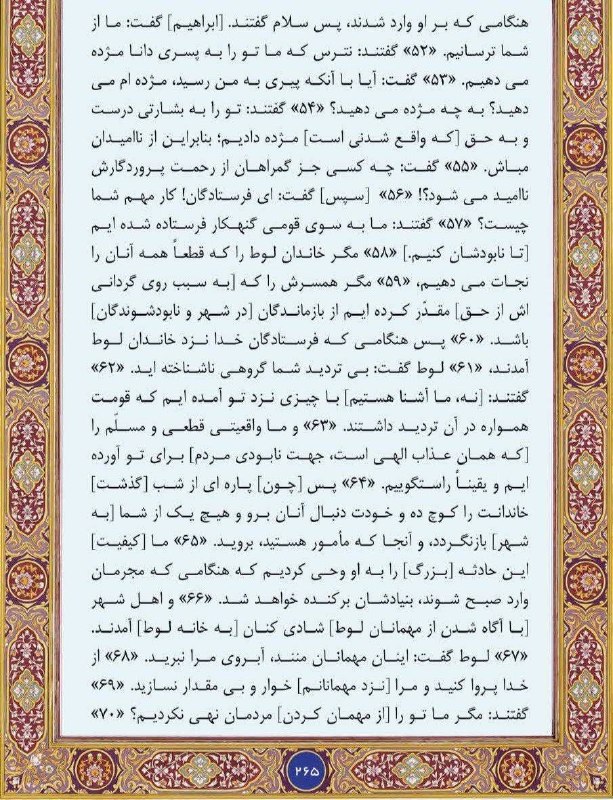 هنگامی که بر او وارد شدند، پس سلام گفتند. [ابراهیم] گفت: ما از
شما ترسانیم. «۵۲» گفتند: نترس که ما تو را به پسری دانا مژده
می دهیم. «۵۳» گفت: آیا با آنکه پیری به من رسید، مژده ام می
دهید؟ به چه مژده می دهید؟ «۵۴» گفتند: تو را به بشارتی درست
و به حق [که واقع شدنی است] مژده دادیم؛ بنابراین از ناامیدان
مباش. «۵۵» گفت: چه کسی جز گمراهان از رحمت پروردگارش
ناامید می شود؟! «۵۶» [سپس] گفت: ای فرستادگان! کار مهم شما
چیست؟ «۵۷» گفتند: ما به سوی قومی گنهکار فرستاده شده ایم
[تا نابودشان کنیم.] «۵۸» مگر خاندان لوط را که قطعاً همه آنان را
نجات می دهیم، «۵۹» مگر همسرش را که [به سبب روی گردانی
اش از حق] مقدّر کرده ایم از بازماندگان [در شهر و نابودشوندگان]
باشد. «۶۰» پس هنگامی که فرستادگان خدا نزد خاندان لوط
آمدند، «۶۱» لوط گفت: بی تردید شما گروهی ناشناخته اید. «۶۲»
گفتند: [نه، ما آشنا هستیم] با چیزی نزد تو آمده ایم که قومت
همواره در آن تردید داشتند. «۶۳» و ما واقعیتی قطعی و مسلّم را
[که همان عذاب الهی است، جهت نابودی مردم] برای تو آورده
ایم و یقیناً راستگوییم. «۶۴» پس [چون] پاره ای از شب [گذشت]
خاندانت را کوچ ده و خودت دنبال آنان برو و هیچ یک از شما [به
شهر] بازنگردد، و آنجا که مأمور هستید، بروید. «۶۵» ما [کیفیت]
این حادثه [بزرگ] را به او وحی کردیم که هنگامی که مجرمان
وارد صبح شوند، بنیادشان برکنده خواهد شد. «۶۶» و اهل شهر
[با آگاه شدن از مهمانان لوط] شادی کنان [به خانه لوط] آمدند.
«۶۷» لوط گفت: اینان مهمانان منند، آبروی مرا نبرید. «۶۸» از
خدا پروا کنید و مرا [نزد مهمانانم] خوار و بی مقدار نسازید. «۶۹»
گفتند: مگر ما تو را [از مهمان کردن] مردمان نهی نکردیم؟ «۷۰»
۲۶۵